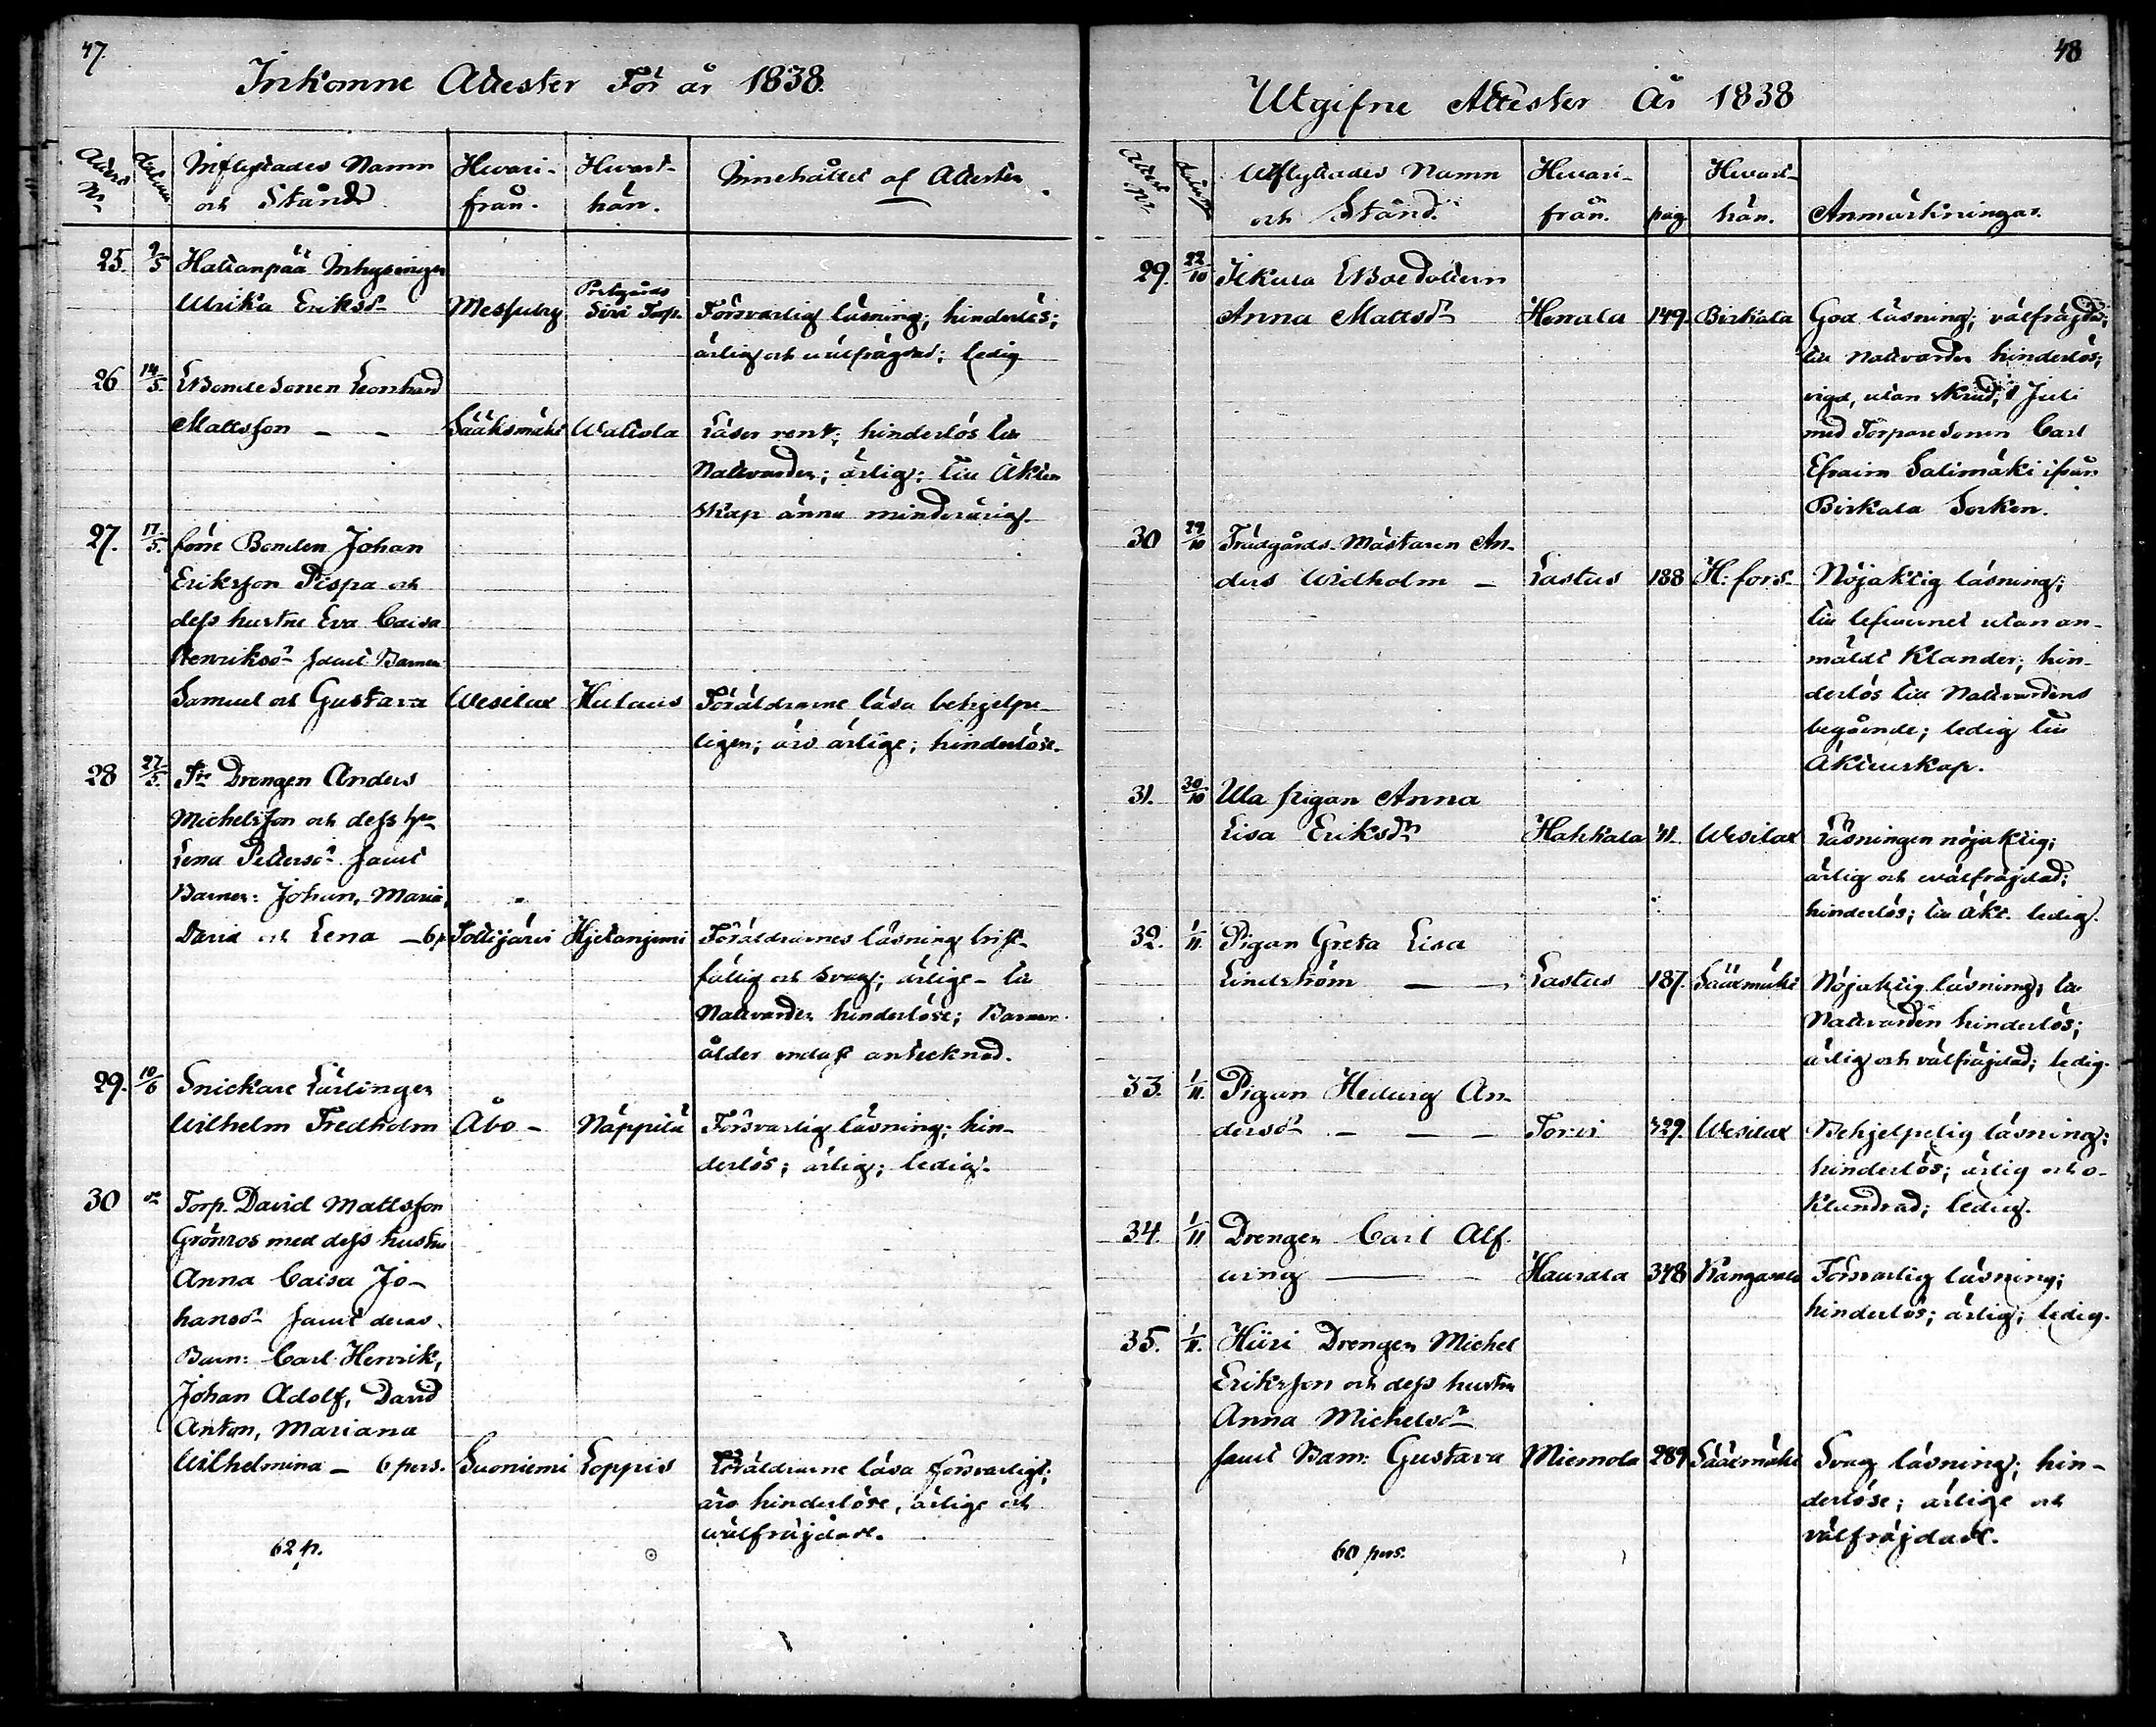 47.
Inkomne Attester För år 1838.
Attest No
datum
Inflyttades Namn
och Stånd.
Hvari-
från.
Hvart-
hän.
Innehållet af Attesten.
25. 9/5 Hatanpää Inhysingen
Ulrika Eriksdr Messuby Prestgårds Siiri Torp. Försvarlig läsning; hinderlös;
ärlig och wälfrägdad; ledig
26 14/5. Bondesonen Leonhard
Mattsson — — Sääksmäki Waltola Läser rent; hinderlös till
Nattvarden; ärlig; till Äkten
skap ännu minderårig.
27. 17/5. förre Bonden Johan
Eriksson Pispa och
dess hustru Eva Caisa
Henriksdr samt Barnen
Samuel och Gustava Wesilax Hulaus Föräldrarne läsa behjelpe
ligen; äro ärlige; hinderlöse.
28 27/5. Drengen Anders
Michelsson och dess
Lena Pettersdr samt
Barnen: Johan, Maria,
David och Lena — 6 p. Tottijärvi Hjetanjemi Föräldrarnes läsning brist-
fällig och svag; ärlige — till
Nattvarden hinderlöse; Barnens
ålder endast antecknad.
29. 10/6 Snickare Lärlingen
Wilhelm Fredholm Åbo — Näppilä Försvarlig läsning; hin-
derlös; ärlig; ledig.
30 Torp. David Mattsson
Grönros med dess hustru
Anna Caisa Jo-
hansdr samt deras
Barn: Carl Henrik,
Johan Adolf, David
Anton, Mariana
Wilhelmina — 6 pers. Suoniemi Loppis Föräldrarne läsa försvarligt;
äro hinderlöse, ärlige och
wälfräjdade.
62 p.
48
Utgifne Attester År 1838
Attest No
datum
Utflyttades Namn
och Stånd.
Hvari-
från.
pag.
Hvart-
hän.
Anmärkningar.
29. 22/10 Bondottern
Anna Mattsdr Henala 149. Birkala God läsning; välfrägdad;
till Nattvarden hinderlös;
vigd, utan skrud, Juli
med Torparesonen Carl
Efraim Salimäki ifrån
Birkala Socken.
30 29/10 Trädgårds-Mästaren An-
ders Widholm — Lastus 188 H:fors Nöjaktig läsning;
till lefvernet utan an-
mäldt Klander; hin-
derlös till Nattvardens
begående; ledig till
Äktenskap.
31. 30/10 Ula pigan Anna
Lisa Eriksdr Hakkala 41. Wesilax Läsningen nöjaktig;
ärlig och wälfräjdad;
hinderlös; till äkt. ledig.
32. 1/11. Pigan Greta Lisa
Lindström — — Lastus 187. Sääxmäki Nöjaktig läsning; till
Nattvarden hinderlös;
ärlig och välfräjdad; ledig.
33. 1/11. Pigan Hedvig An-
dersdr — — — Torvi 429. Wesilax Behjelpelig läsning;
hinderlös; ärlig och o-
klandrad; ledig.
34. 1/11 Drengen Carl Alf.
ving — — Haurala 348 Kangasala Försvarlig läsning;
hinderlös; ärlig; ledig.
35. 1/11. Hiiri Drengen Michel
Eriksson och dess hustru
Anna Michelsdr
samt Barn: Gustava Miemola 289 Sääxmäki Svag läsning; hin-
derlöse; ärlige och
välfräjdade.
60 pers.